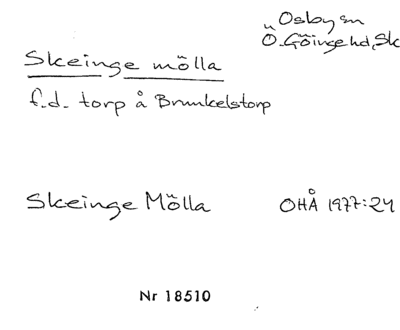 Osby sn
Ö. Göinge hd, Sk
Skeinge mölla
f.d. torp å Brunkelstorp
Skeinge Mölla OHÅ 1977:24
Nr 18510